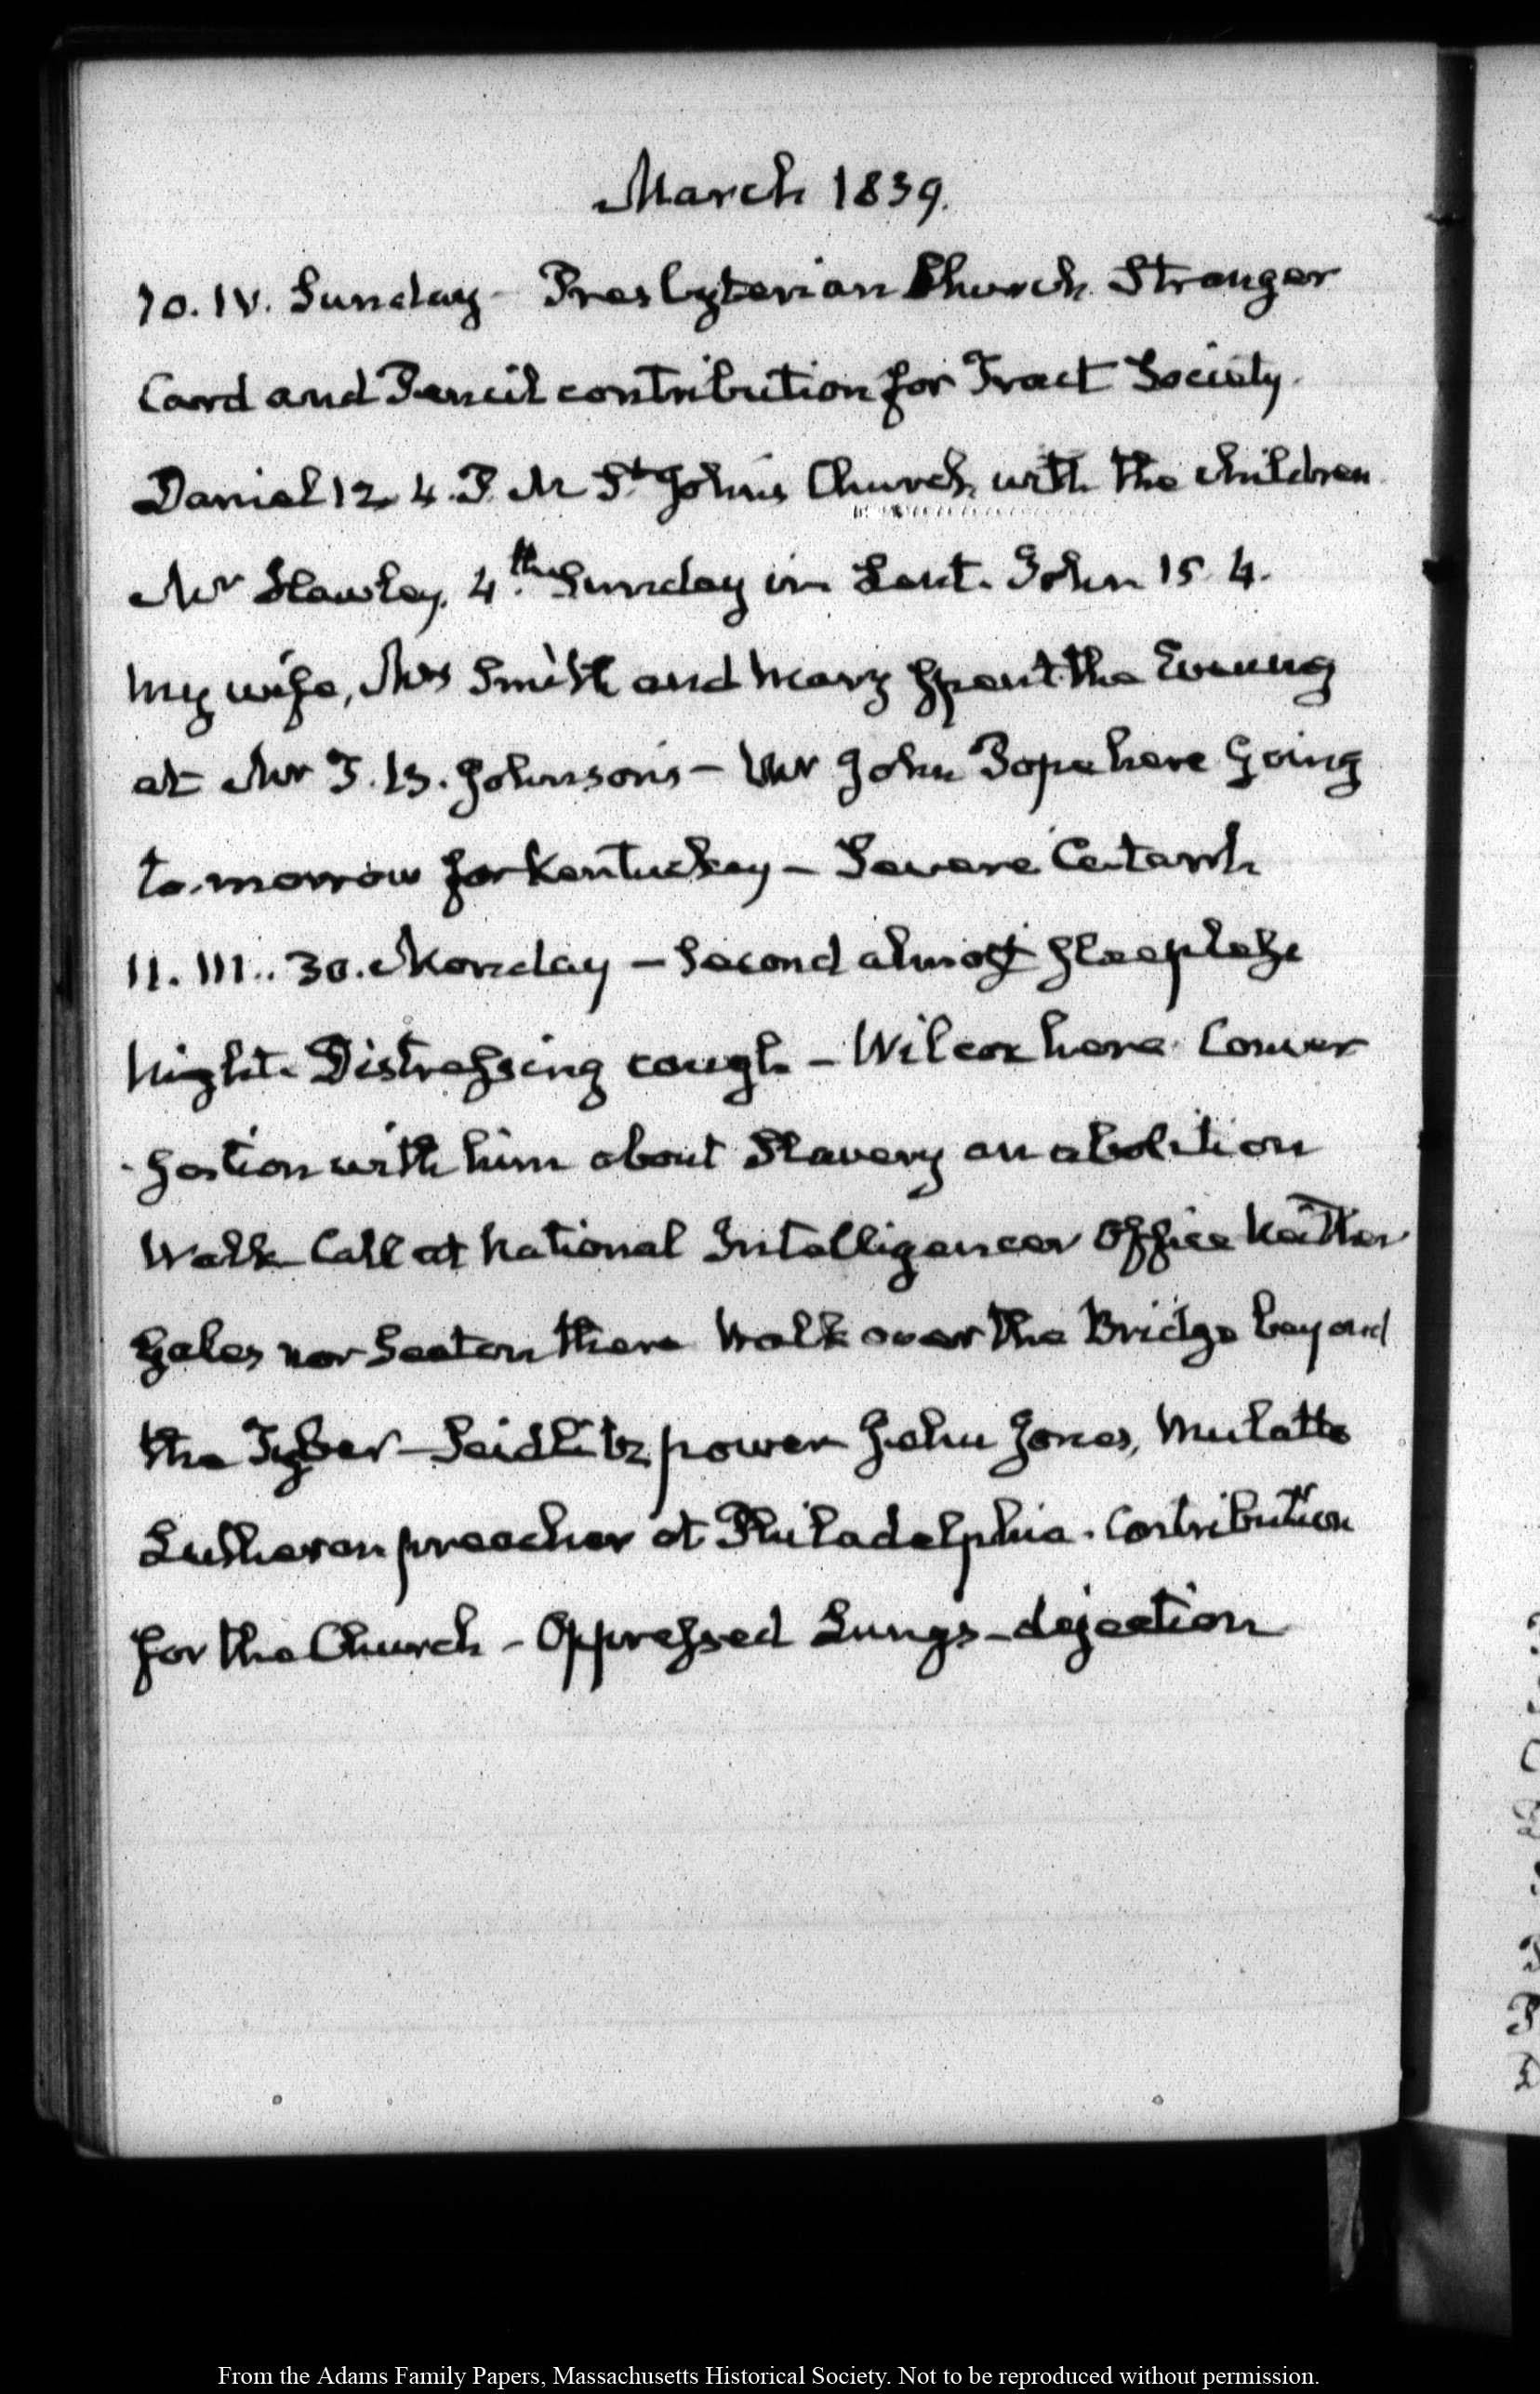 March 1839.
10. IV. Sunday – Presbyterian Church. Stranger
Card and Pencil contribution for Tract Society.
Daniel 12. 4. P. M St John's Church with the children
Mr Hawley. 4.th Sunday in Lent. John 15. 4.
My wife, Mrs Smith and Mary spent the Evening
at Mr T. B. Johnson's – Mr John Pope here going
to-morrow for Kentucky – Severe Catarrh
11. III.. 30. Monday – Second almost sleepless
Night. Distressing cough – Wilcox here. Conver
-sation with him about Slavery an abolition
Walk – Call at National Intelligencer Office Neither
Gales nor Seaton there Walk over the Bridge beyond
the Tyber – Seidlitz power John Jones, Mulatto
Lutheran preacher at Philadelphia. Contribution
for the Church – Oppressed Lungs – dejection
From the Adams Family Papers, Massachusetts Historical Society. Not to be reproduced without permission.